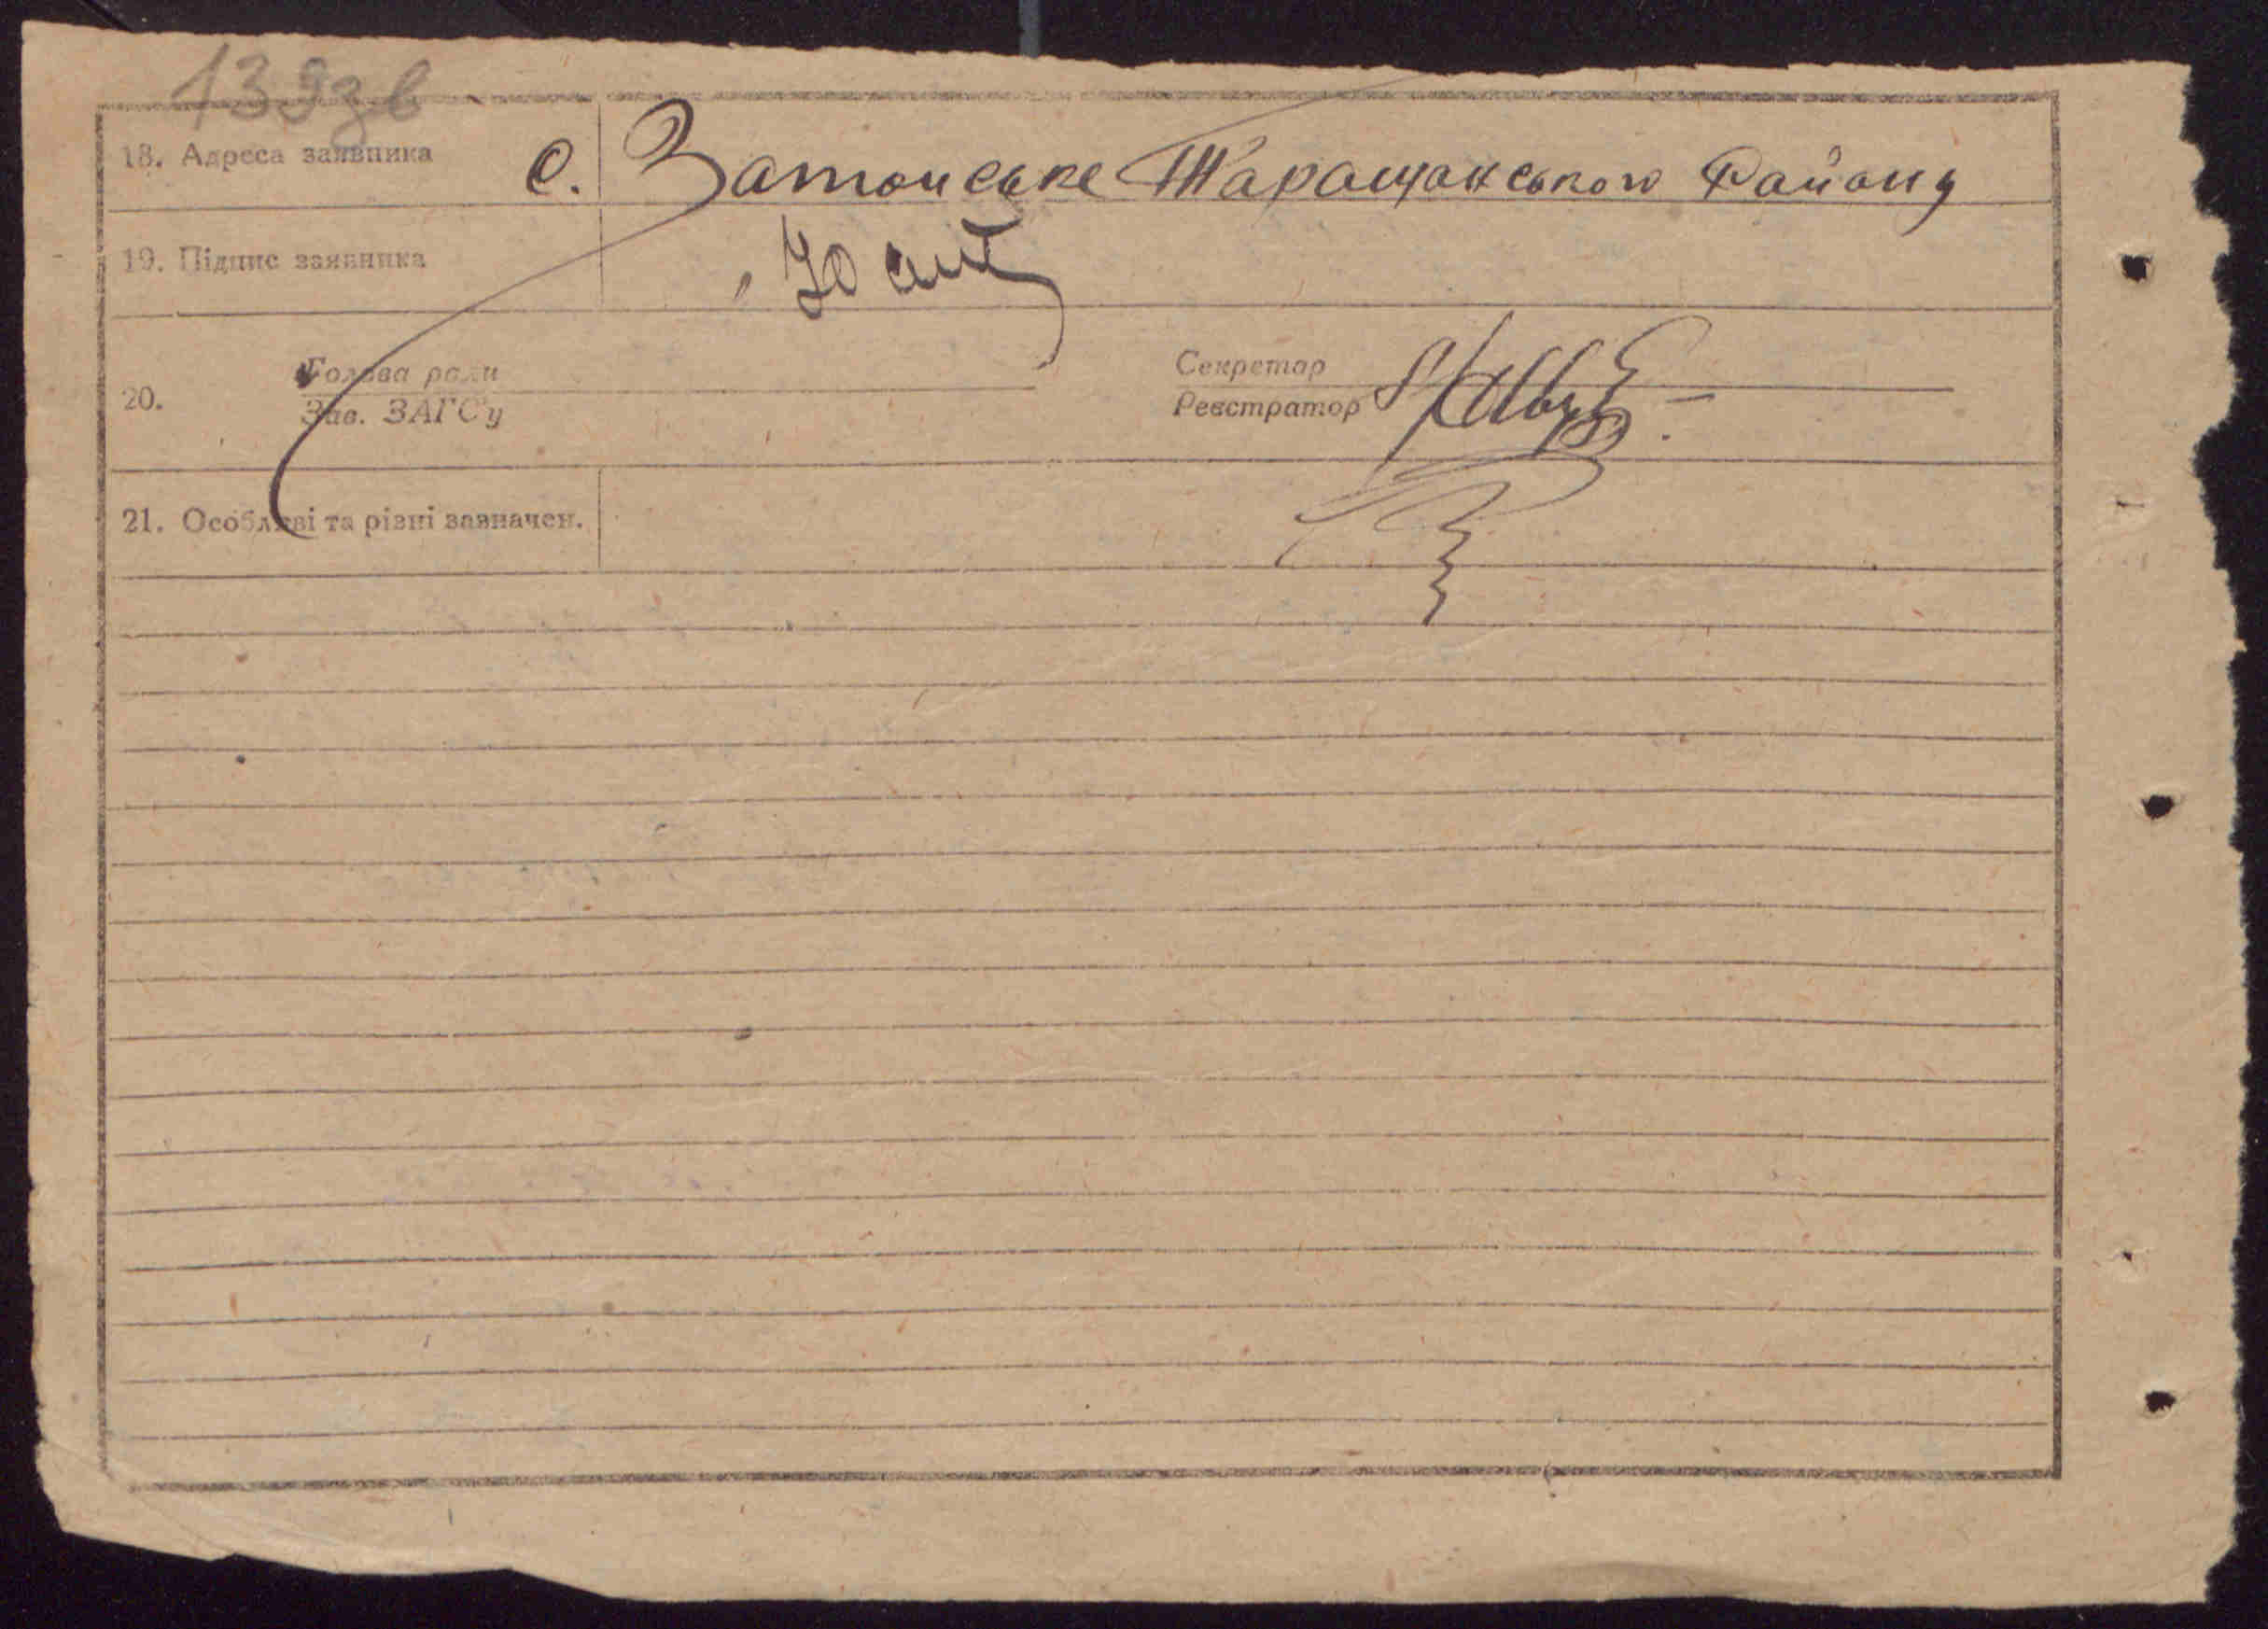 139зв
18. Адреса заявника с. Затонське Таращанського Району
19. Підпис заявника
20. Голова ради Секретар
Зав. ЗАГС'у Реєстратор
21. Особливі та різні зазначен.